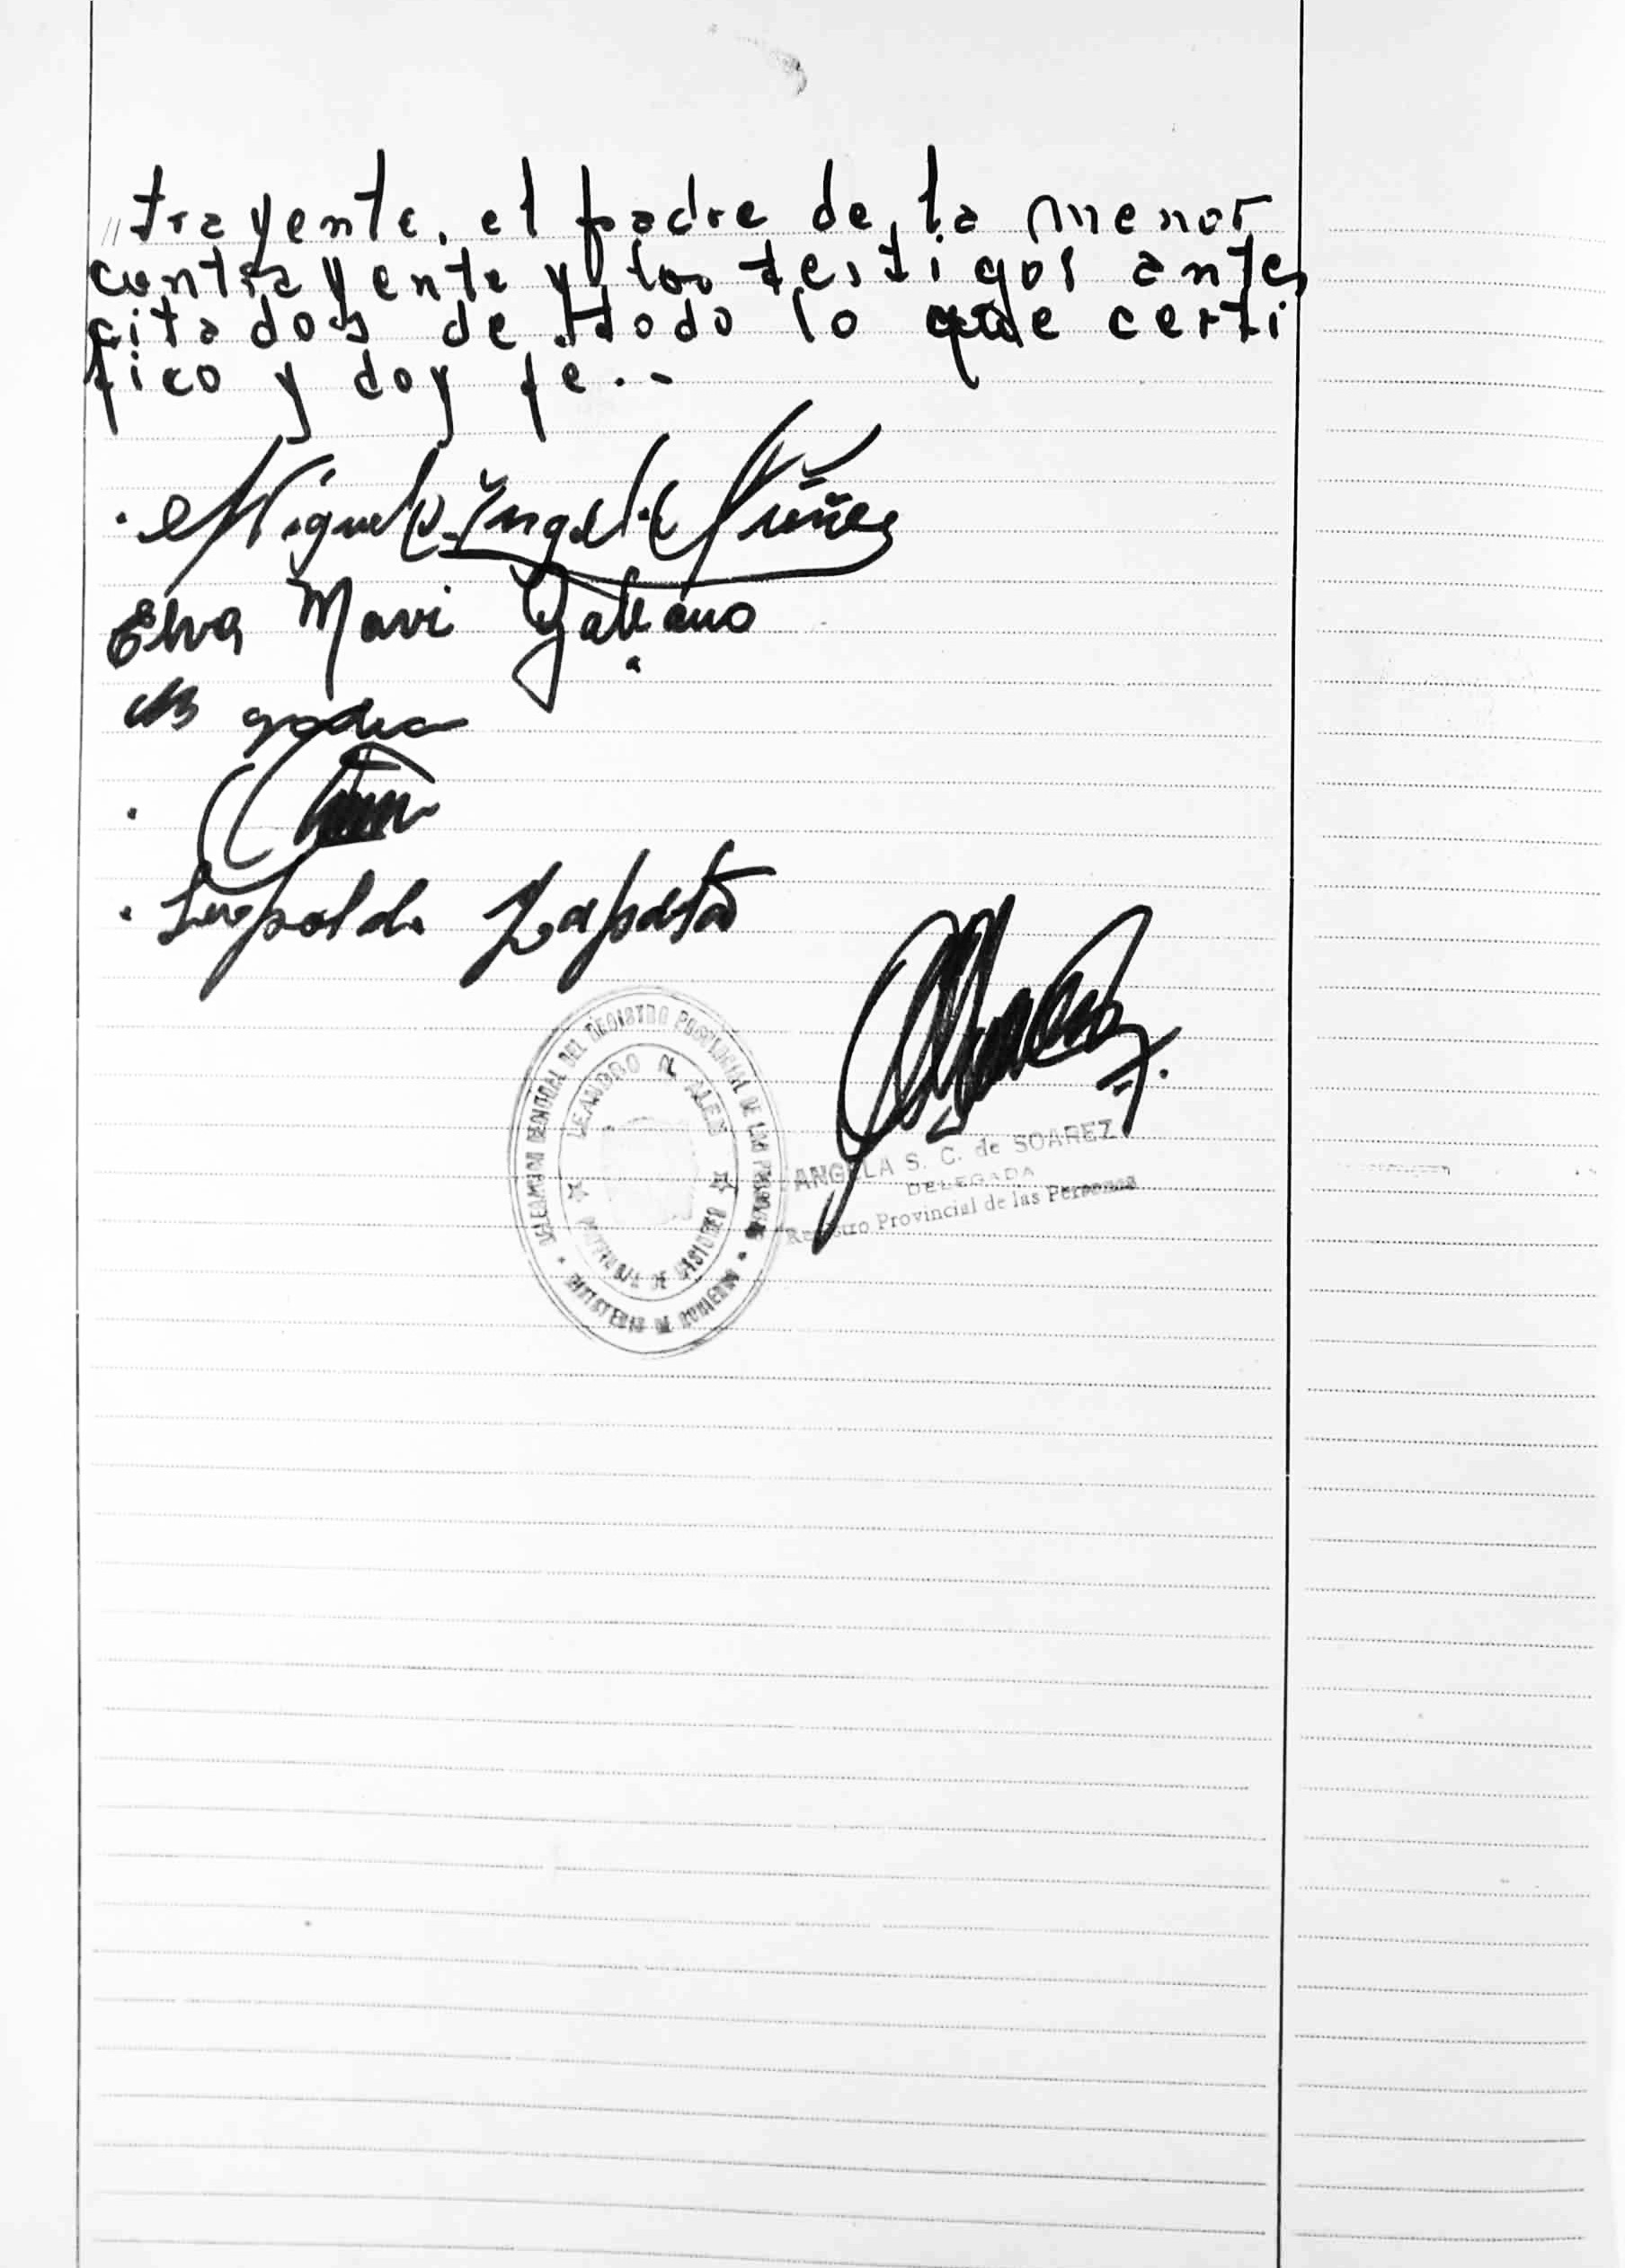 "trayente, el padre de la menor
contrayente y los testigos antes
citados de todo lo que certi
fico y doy fe.-
Miguel Angel Núñez
Elva Mari Galeano
Leopoldo Zapata
DELEGACION REGIONAL DEL REGISTRO PROVINCIAL DE LAS PERSONAS
LEANDRO N. ALEM
PROVINCIA DE MISIONES
MINISTERIO DE GOBIERNO
ANGELA S. C. de SOAREZ
DELEGADA
Registro Provincial de las Personas